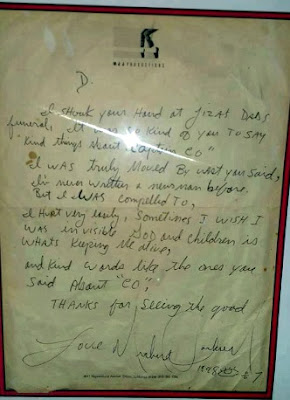 MJJ PRODUCTIONS
D.
I shook your Hand at Jizat DaDs
funeral, It was so kind of you TO SAY
kind things About "Captain EO"
I WAS Truly Moved By what you Said,
I'v never written a newsman before.
But I WAS compelled To,
I Hurt very easily, Sometimes I wish I
was invisible GOD and children is
whats keeping Me alive,
and kind words like the ones you
said About "EO",
THANKS for Seeing the good
Love
1998